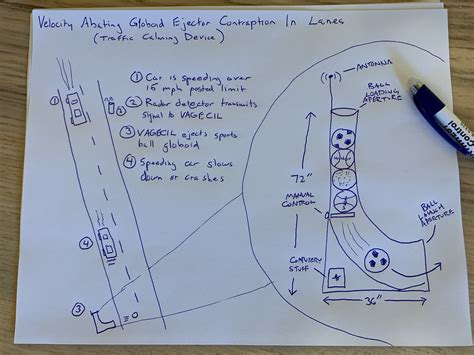 Velocity Abating Globoid Ejector Contraption In Lanes
(Traffic Calming Device)
① Car is speeding over
15 mph posted limit
② Radar detector transmits
signal to VAGECIL
③ VAGECIL ejects sports
ball globoid
④ Speeding car slows
down or crashes
①
②
④
③
ANTONNA
BALL
LOADING
APERTURE
72"
MANUAL
CONTROL
BALL
LAUNCH
APERTURE
COMPUTERY
STUFF
36"
control